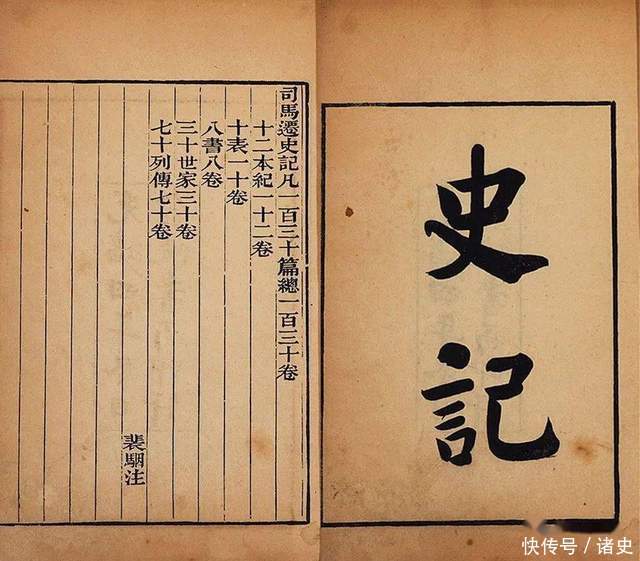 史記
司馬遷史記凡一百三十篇總一百三十卷
十二本紀一十二卷
十表一十卷
八書八卷
三十世家三十卷
七十列傳七十卷
裴駰注
快传号/诸史